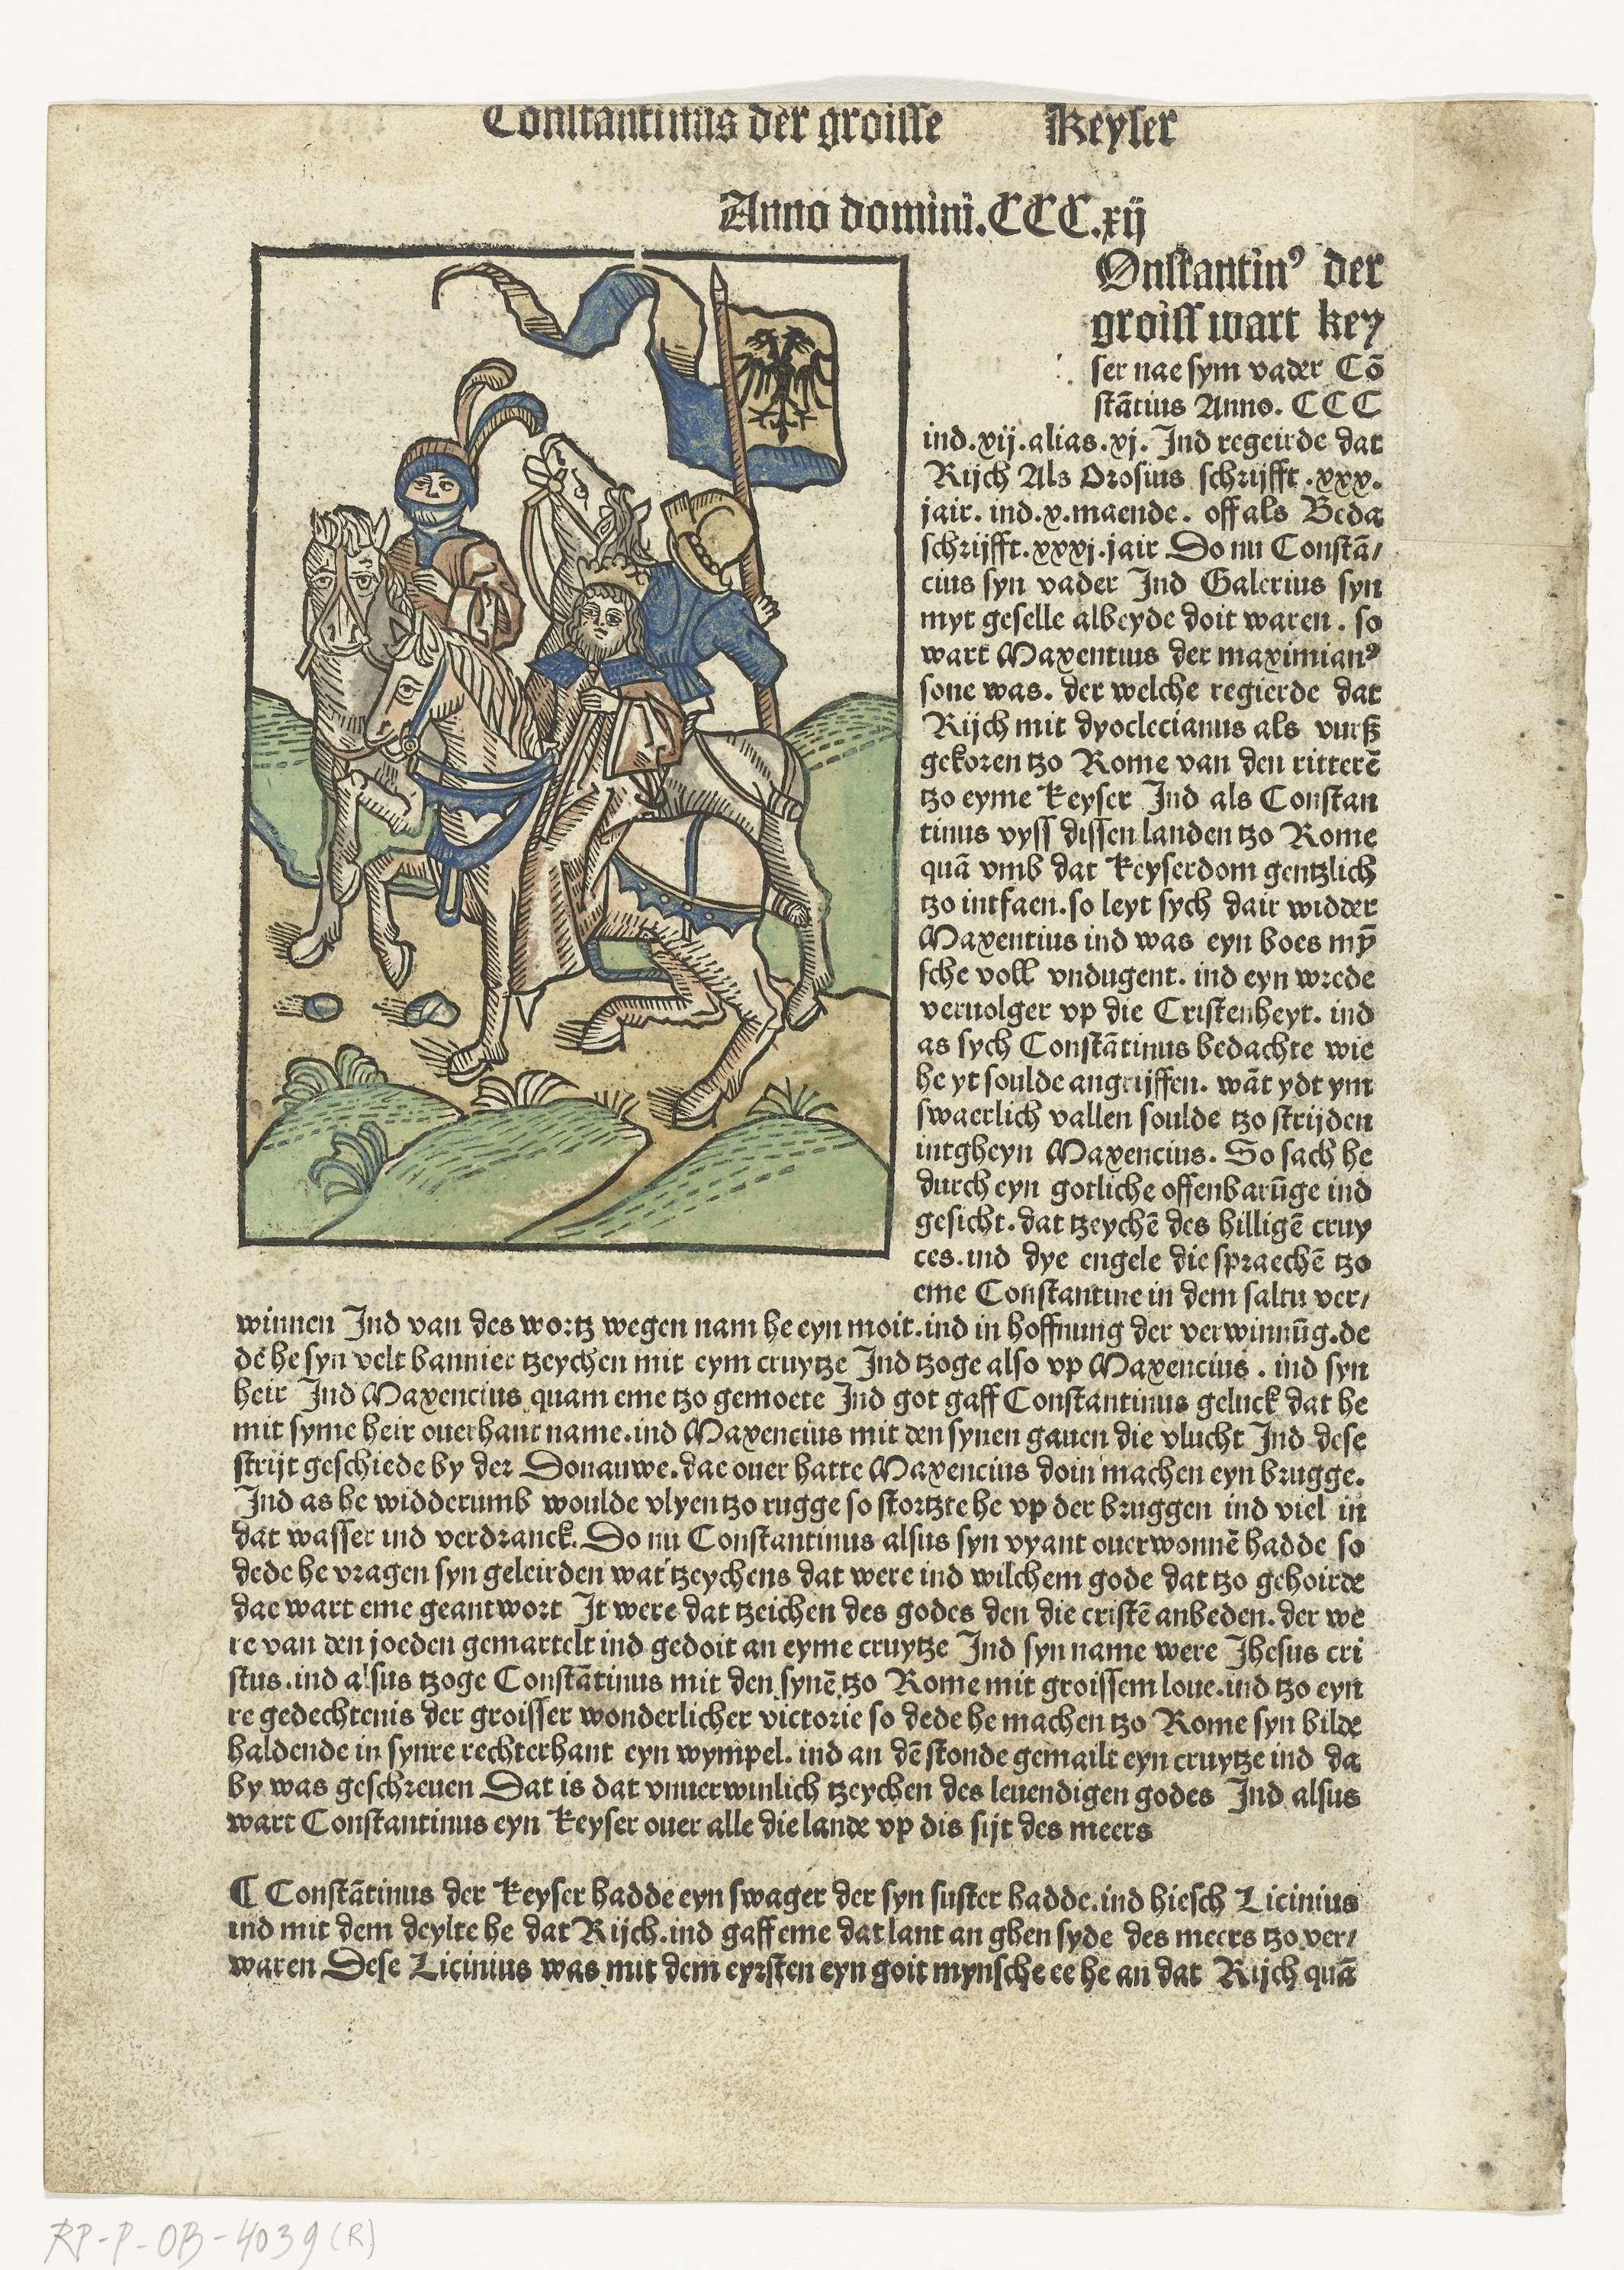 Constantinus der groisse Keyser
Anno domini.CCC.xij
Onstantinꝰ der
groiss wart key
ser nae sym vader Cõ
stãtius Anno. CCC
ind.xij.alias.xj. Ind regeirde dat
Rijch Als Orosius schrijfft.xxx.
jair. ind.x.maende. off als Beda
schrijfft.xxxj.jair Do nu Constã/
cius syn vader Ind Galerius syn
myt geselle albeyde doit waren. so
wart Maxentius der maximianꝰ
sone was. der welche regierde dat
Rijch mit dyoclecianus als vurß
gekoren tzo Rome van denritterẽ
tzo eyme keyser Ind als Constan
tinus vyss dissen landen tzo Rome
quã vmb dat keyserdom gentzlich
tzo intfaen.so leyt sych dair widder
Maxentius ind was eyn boes mỹ
sche voll vndugent. ind eyn wrede
veruolger vp die Cristenheyt. ind
as sych Constãtinus bedachte wie
he yt soulde angrijffen. wãt ydt ym
swaerlich vallen soulde tzo strijden
intgheyn Maxencius. So sach he
durch eyn gotliche offenbarũge ind
gesicht.dat tzeychẽ des hilligẽ cruy
ces.ind dye engele die spraechẽ tzo
eme Constantine in dem saltu ver/
winnen Ind van des wortz wegen nam he eyn moit.ind in hoffnung der verwinnũg.de
dé he syn velt bannier tzeychen mit eym cruytze Ind tzoge also vp Maxencius. ind syn
heir Ind Maxencius quam eme tzo gemoete Ind got gaff Constantinus geluck dat he
mit syme heir ouerhant name.ind Maxencius mit den synen gauen die vlucht Ind dese
strijt geschiede by der Donauwe.dae ouer hatte Maxencius doin machen eyn brugge.
Ind as he widderumb woulde vlyen tzo rugge so stortzte he vp der bruggen ind viel in
dat wasser ind verdranck. Do nu Constantinus alsus syn vyant ouerwonnẽ hadde so
dede he vragen syn geleirden wat tzeychens dat were ind wilchem gode dat tzo gehoirde
dae wart eme geantwort It were dat tzeichen des godes den die cristẽ anbeden.der we
re van den joeden gemartelt ind gedoit an eyme cruytze Ind syn name were Jhesus cri
stus.ind alsus tzoge Constãtinus mit den synẽ tzo Rome mit groissem loue.ind tzo eyn
re gedechtenis der groisser wonderlicher victorie so dede he machen tzo Rome syn bilde
haldende in synre rechterhant eyn wympel. ind an dẽ stonde gemailt eyn cruytze ind da
by was geschreuen Dat is dat vnuerwinlich tzeychen des leuendigen godes Ind alsus
wart Constantinus eyn keyser ouer alle die lande vp dis sijt des meers
¶ Constãtinus der keyser hadde eyn swager der syn suster hadde.ind hiesch Licinius
ind mit dem deylte he dat Rijch.ind gaff eme dat lant an ghen syde des meers tzo ver/
waren Dese Licinius was mit dem eyrsten eyn goit mynsche ee he an dat Rijch quã
RP-P-OB-4039 (R)